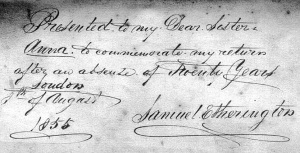 Presented to my Dear Sister
Anna to commemorate my return
after an absence of Twenty Years
London
7th of August
1855
Samuel Etherington